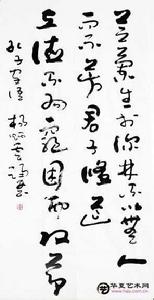 芝蘭生於深林不以無人
而不芳君子修道
立德不為窮困而改節
孔子家語
华夏艺术网